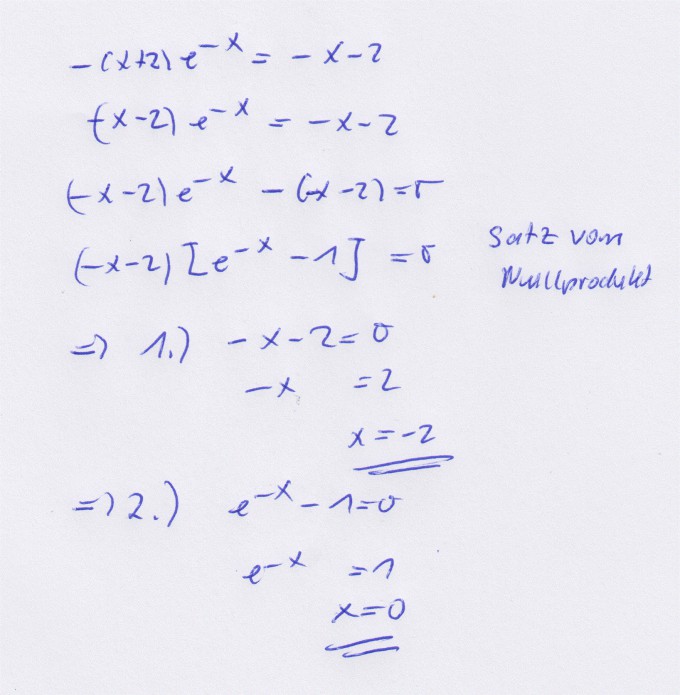 -(x+2) e^-x = -x-2
(-x-2) e^-x = -x-2
(-x-2) e^-x - (-x-2) = 0
(-x-2) [e^-x - 1] = 0
Satz vom
Nullprodukt
=> 1.) -x-2=0
-x =2
x=-2
=> 2.) e^-x - 1=0
e^-x =1
x=0